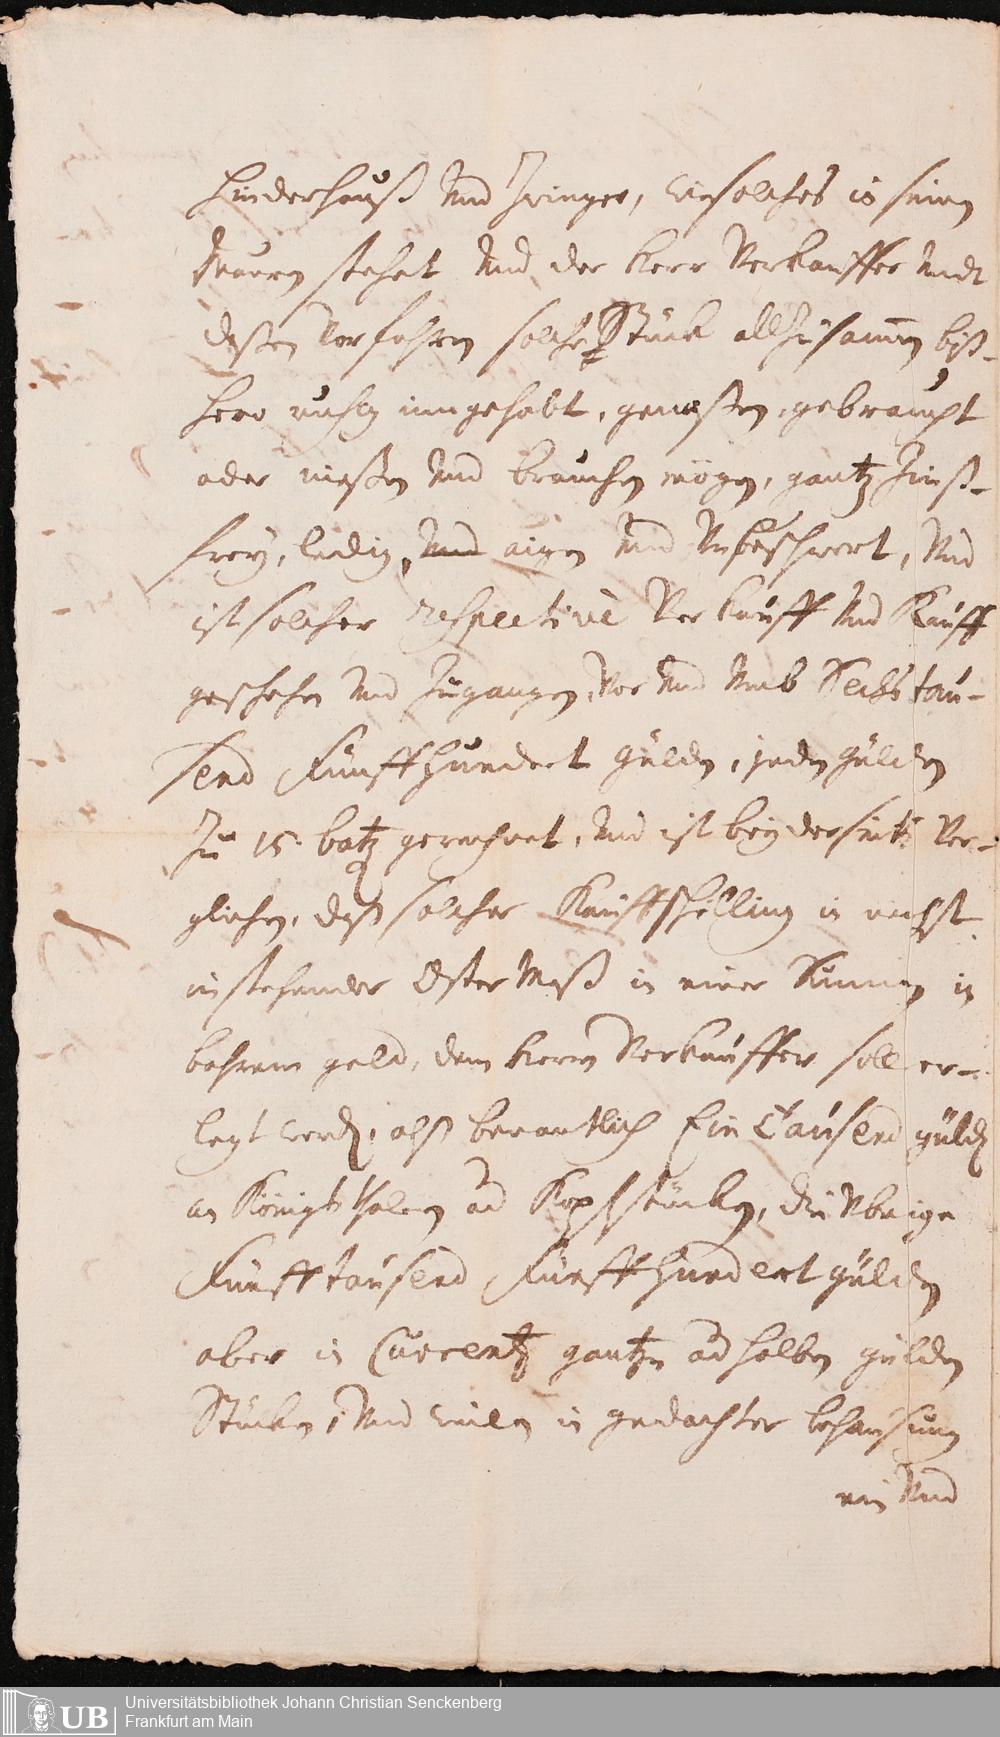 Hinderhauß und Zwinger, wie solches in seinen
Mauern stehet und der Herr Verkauffer undt
deßen Vorfahren solche Stück all zusamen biß-
hero ruhig inngehabt, genoßen, gebraucht
oder nießen und brauchen mögen, gantz Zinß-
frey, ledig, und aigen und unbeschwert, und
ist solcher respectivè Verkauff und Kauff
geschehen und zugangen, vor und umb Sechstau-
send Fünffhundert gülden, jeden gülden
zu 15. batz gerechnet, und ist beyderseits ver-
glichen, daß solcher Kauffschilling in nechst
instehender Oster Meß in einer Summen in
bahrem geld, dem Herrn Verkauffer soll er-
legt werden, alß benantlich Ein Tausend güld
an Königsthalern und Kopfstücken, die übrige
Fünfftausend Fünffhundert gülden
aber in Current gantzen und halben gülden
Stücken, und weilen in gedachter behausung
ein und
Universitätsbibliothek Johann Christian Senckenberg
Frankfurt am Main
UB